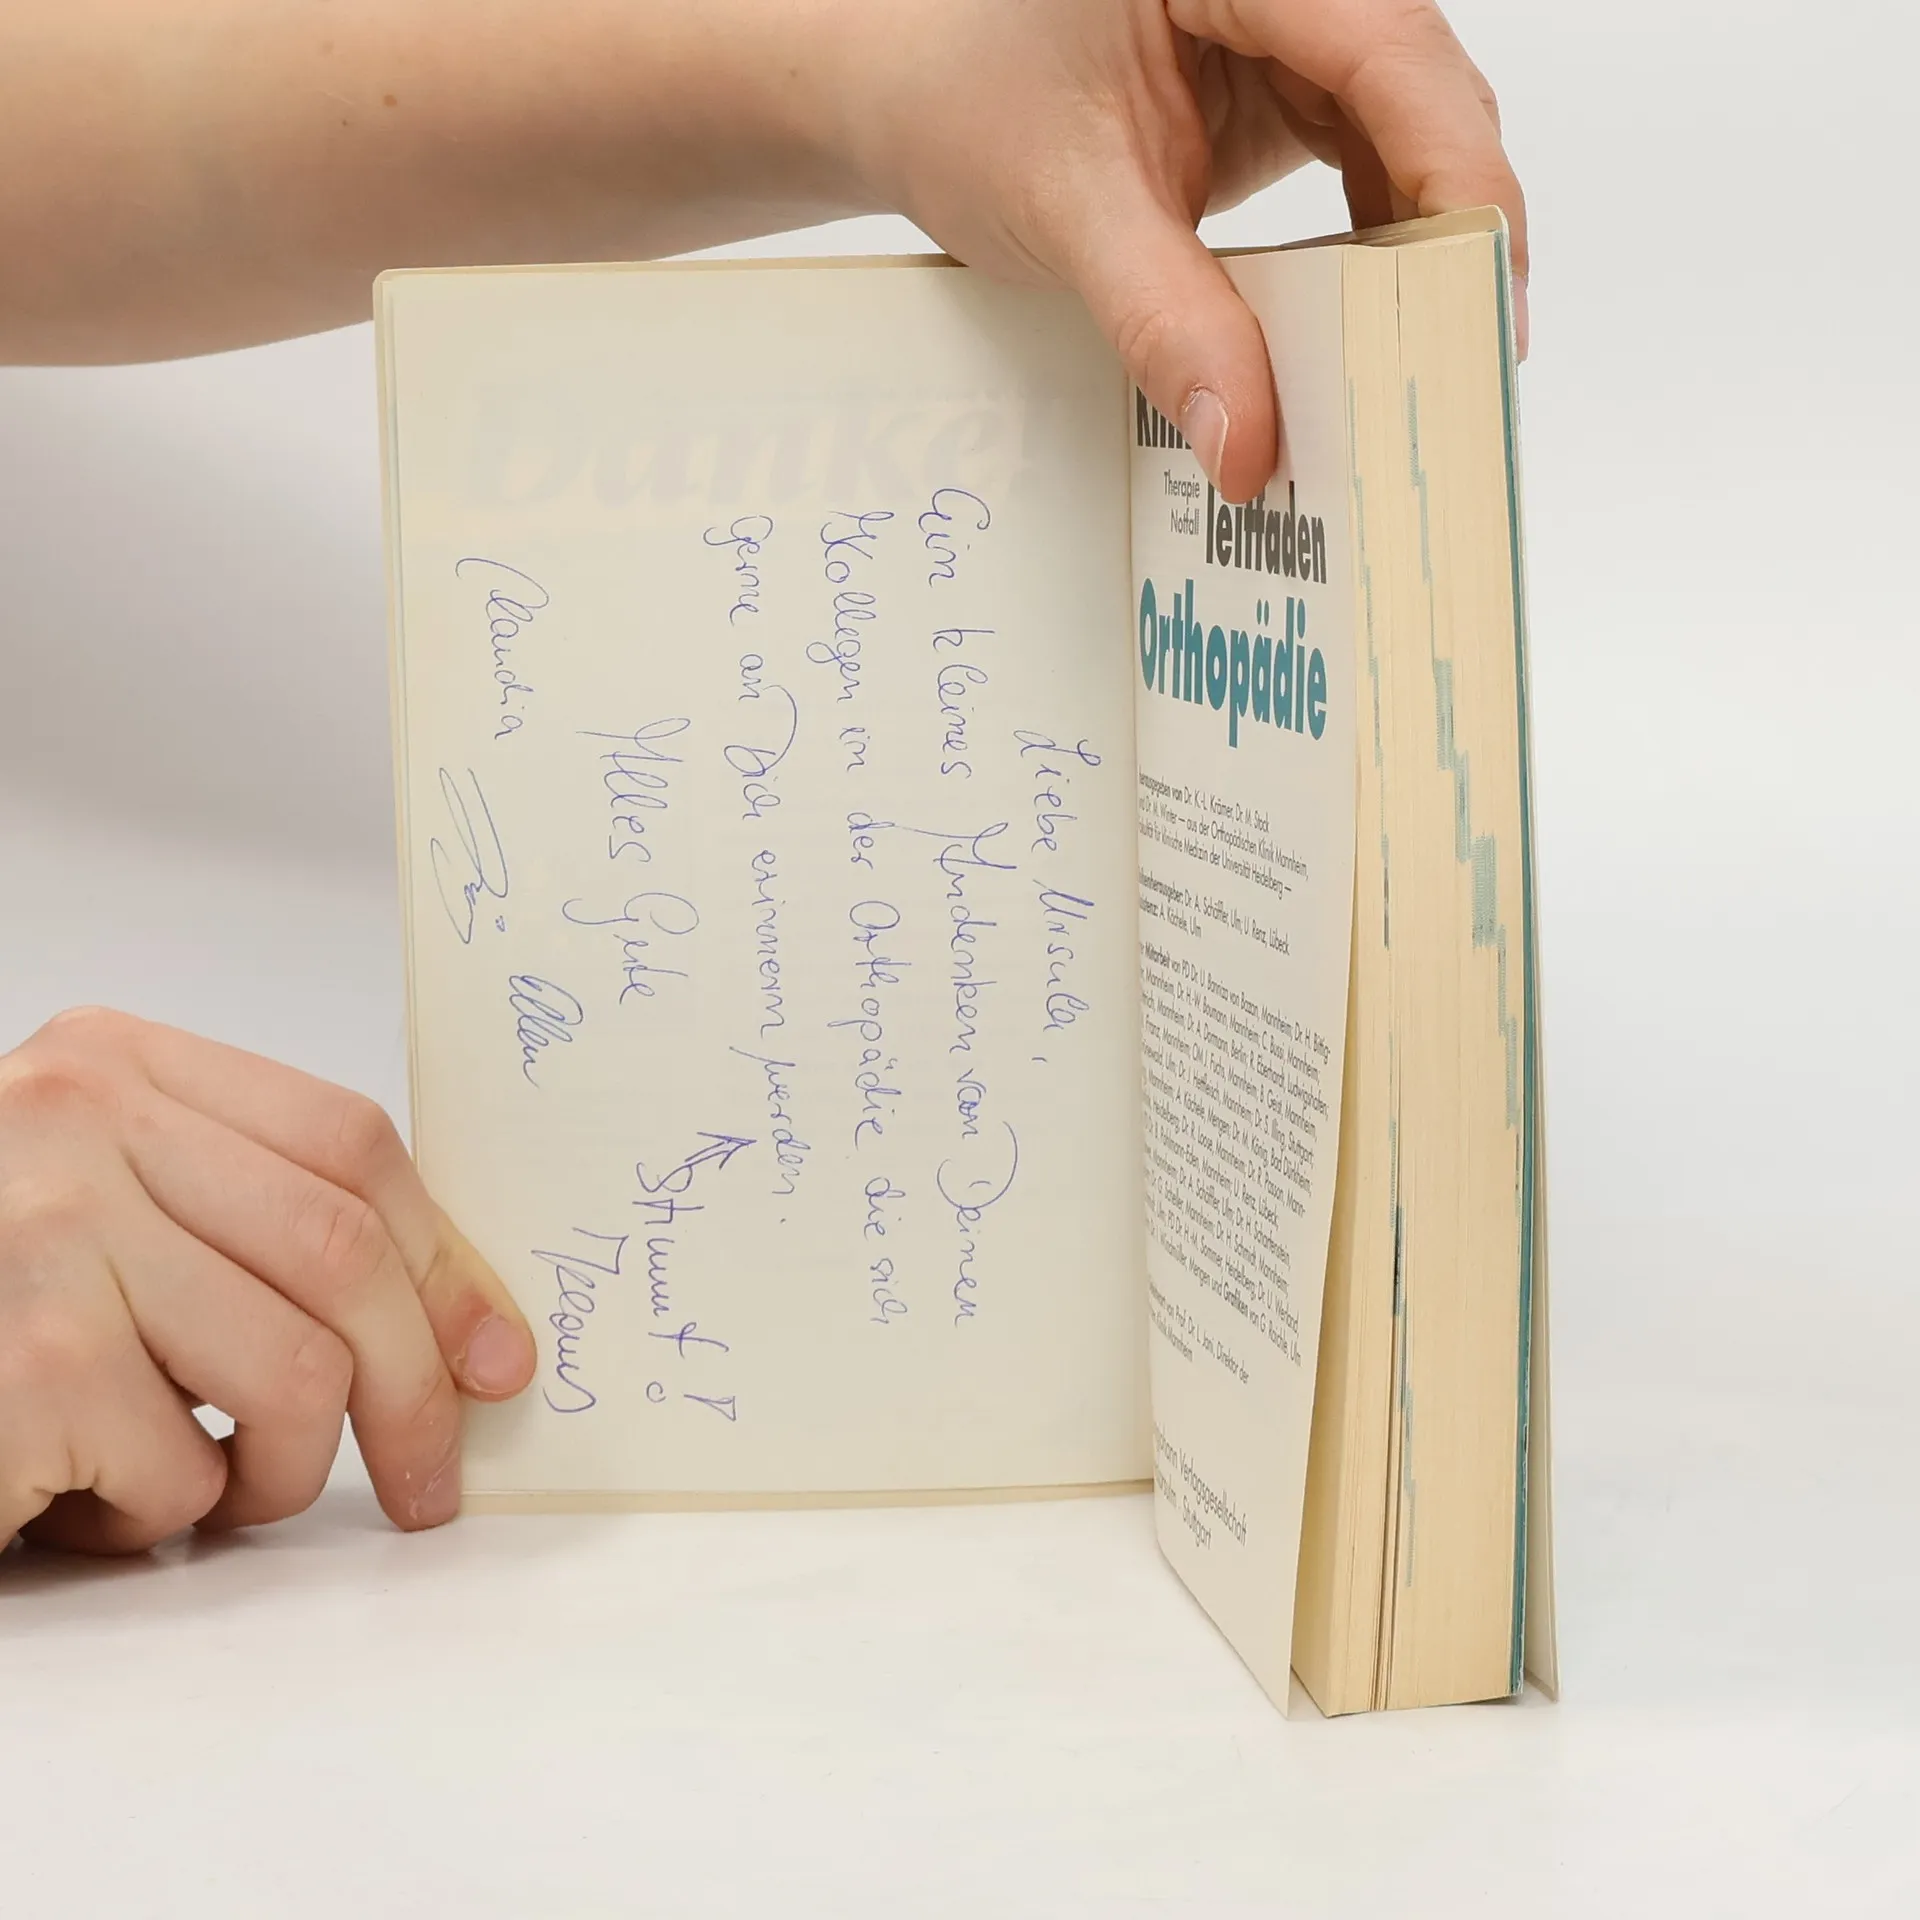 Liebe Ursula,
Ein kleines Andenken von Deinen
Kollegen in der Orthopädie die sich
gerne an Dich erinnern werden.
Stimmt!
Alles Gute
Claudia
Klaus
Danke
Therapie
Notfall
leitfaden
Orthopädie
herausgegeben von Dr. K.-L. Krämer, Dr. M. Stock
und Dr. M. Winter — aus der Orthopädischen Klinik Mannheim,
Fakultät für klinische Medizin der Universität Heidelberg —
Reihenherausgeber: Dr. A. Schäffler, Ulm; U. Renz, Lübeck
A. Kächele, Ulm
Mitarbeit von PD Dr. U. Banniza von Bazan, Mannheim; Dr. H. Bittig-
Mannheim; Dr. H.-W. Baumann, Mannheim; C. Bussi, Mannheim;
Mannheim; Dr. A. Dormann, Berlin; R. Eberhardt, Ludwigshafen;
Franz, Mannheim; OM J. Fuchs, Mannheim; B. Geist, Mannheim;
Ulm; Dr. J. Heitfleisch, Mannheim; Dr. S. Illing, Stuttgart;
Mannheim; A. Kächele, Mengen; Dr. M. König, Bad Dürkheim;
Heidelberg; Dr. R. Loose, Mannheim; Dr. R. Passon, Mann-
Dr. B. Pohlmann-Eden, Mannheim; U. Renz, Lübeck;
Mannheim; Dr. A. Schäffler, Ulm; Dr. H. Scharfenstein,
Dr. G. Scheller, Mannheim; Dr. H. Schmidt, Mannheim;
Ulm; PD Dr. H.-M. Sommer, Heidelberg; Dr. U. Weiland,
Dr. I. Windmüller, Mengen und Grafiken von G. Raichle, Ulm
von Prof. Dr. L. Jani, Direktor der
Klinik Mannheim
Verlagsgesellschaft
Stuttgart